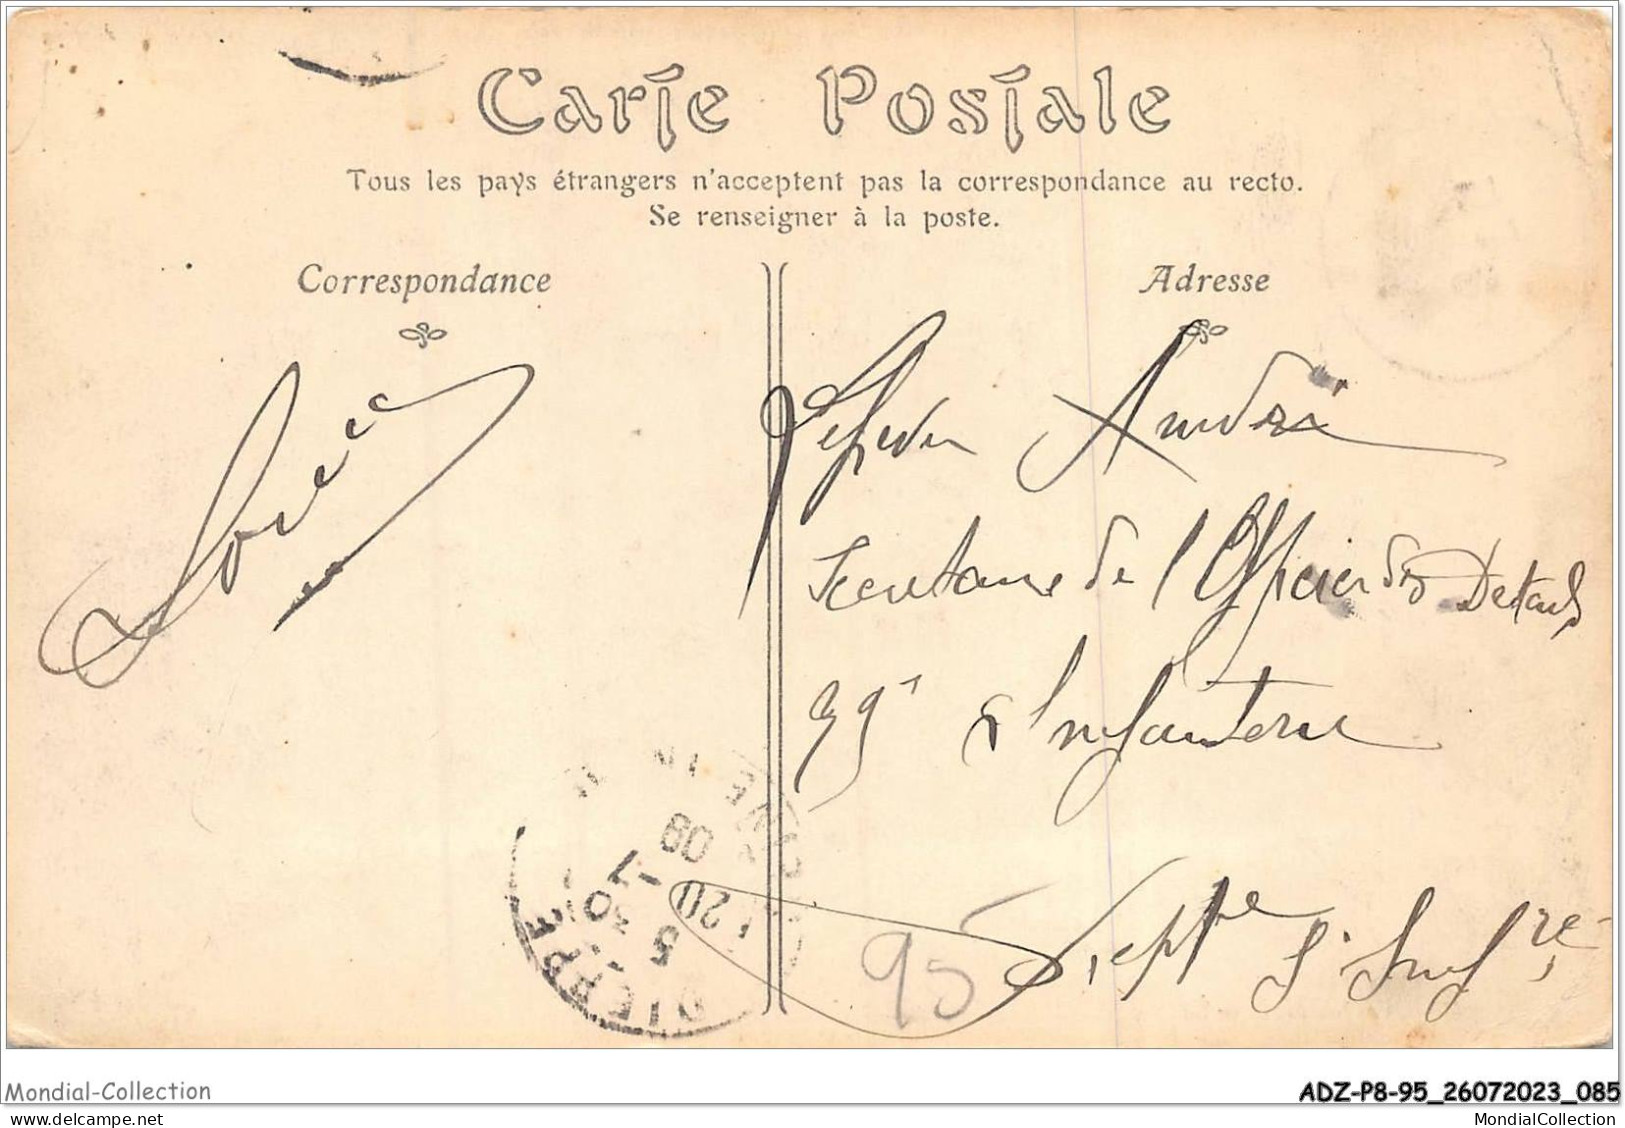 Carte Postale
Tous les pays étrangers n'acceptent pas la correspondance au recto.
Se renseigner à la poste.
Correspondance
Adresse
André
Secretaire de l'Officier des Details
39e d'Infanterie
Dieppe Sne Infre
95
DIEPPE
5
30
1-20
-7
08
Mondial-Collection
ADZ-P8-95_26072023_085
MondialCollection